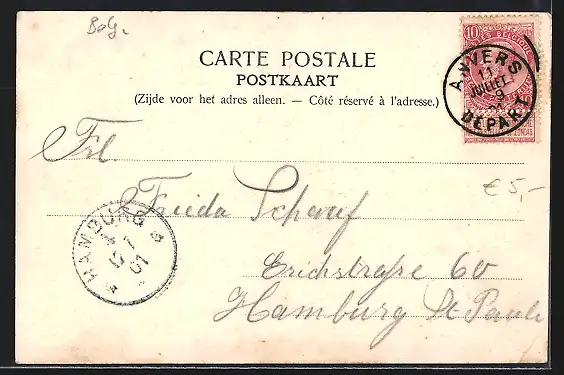 Belg.
CARTE POSTALE
POSTKAART
(Zijde voor het adres alleen. — Côté réservé à l'adresse.)
10
ANVERS
11
JUILLET
DEPART
Frl
Frieda Scharf
€ 5,-
Erichstraße 60
Hamburg St Pauli
HAMBURG
7
01